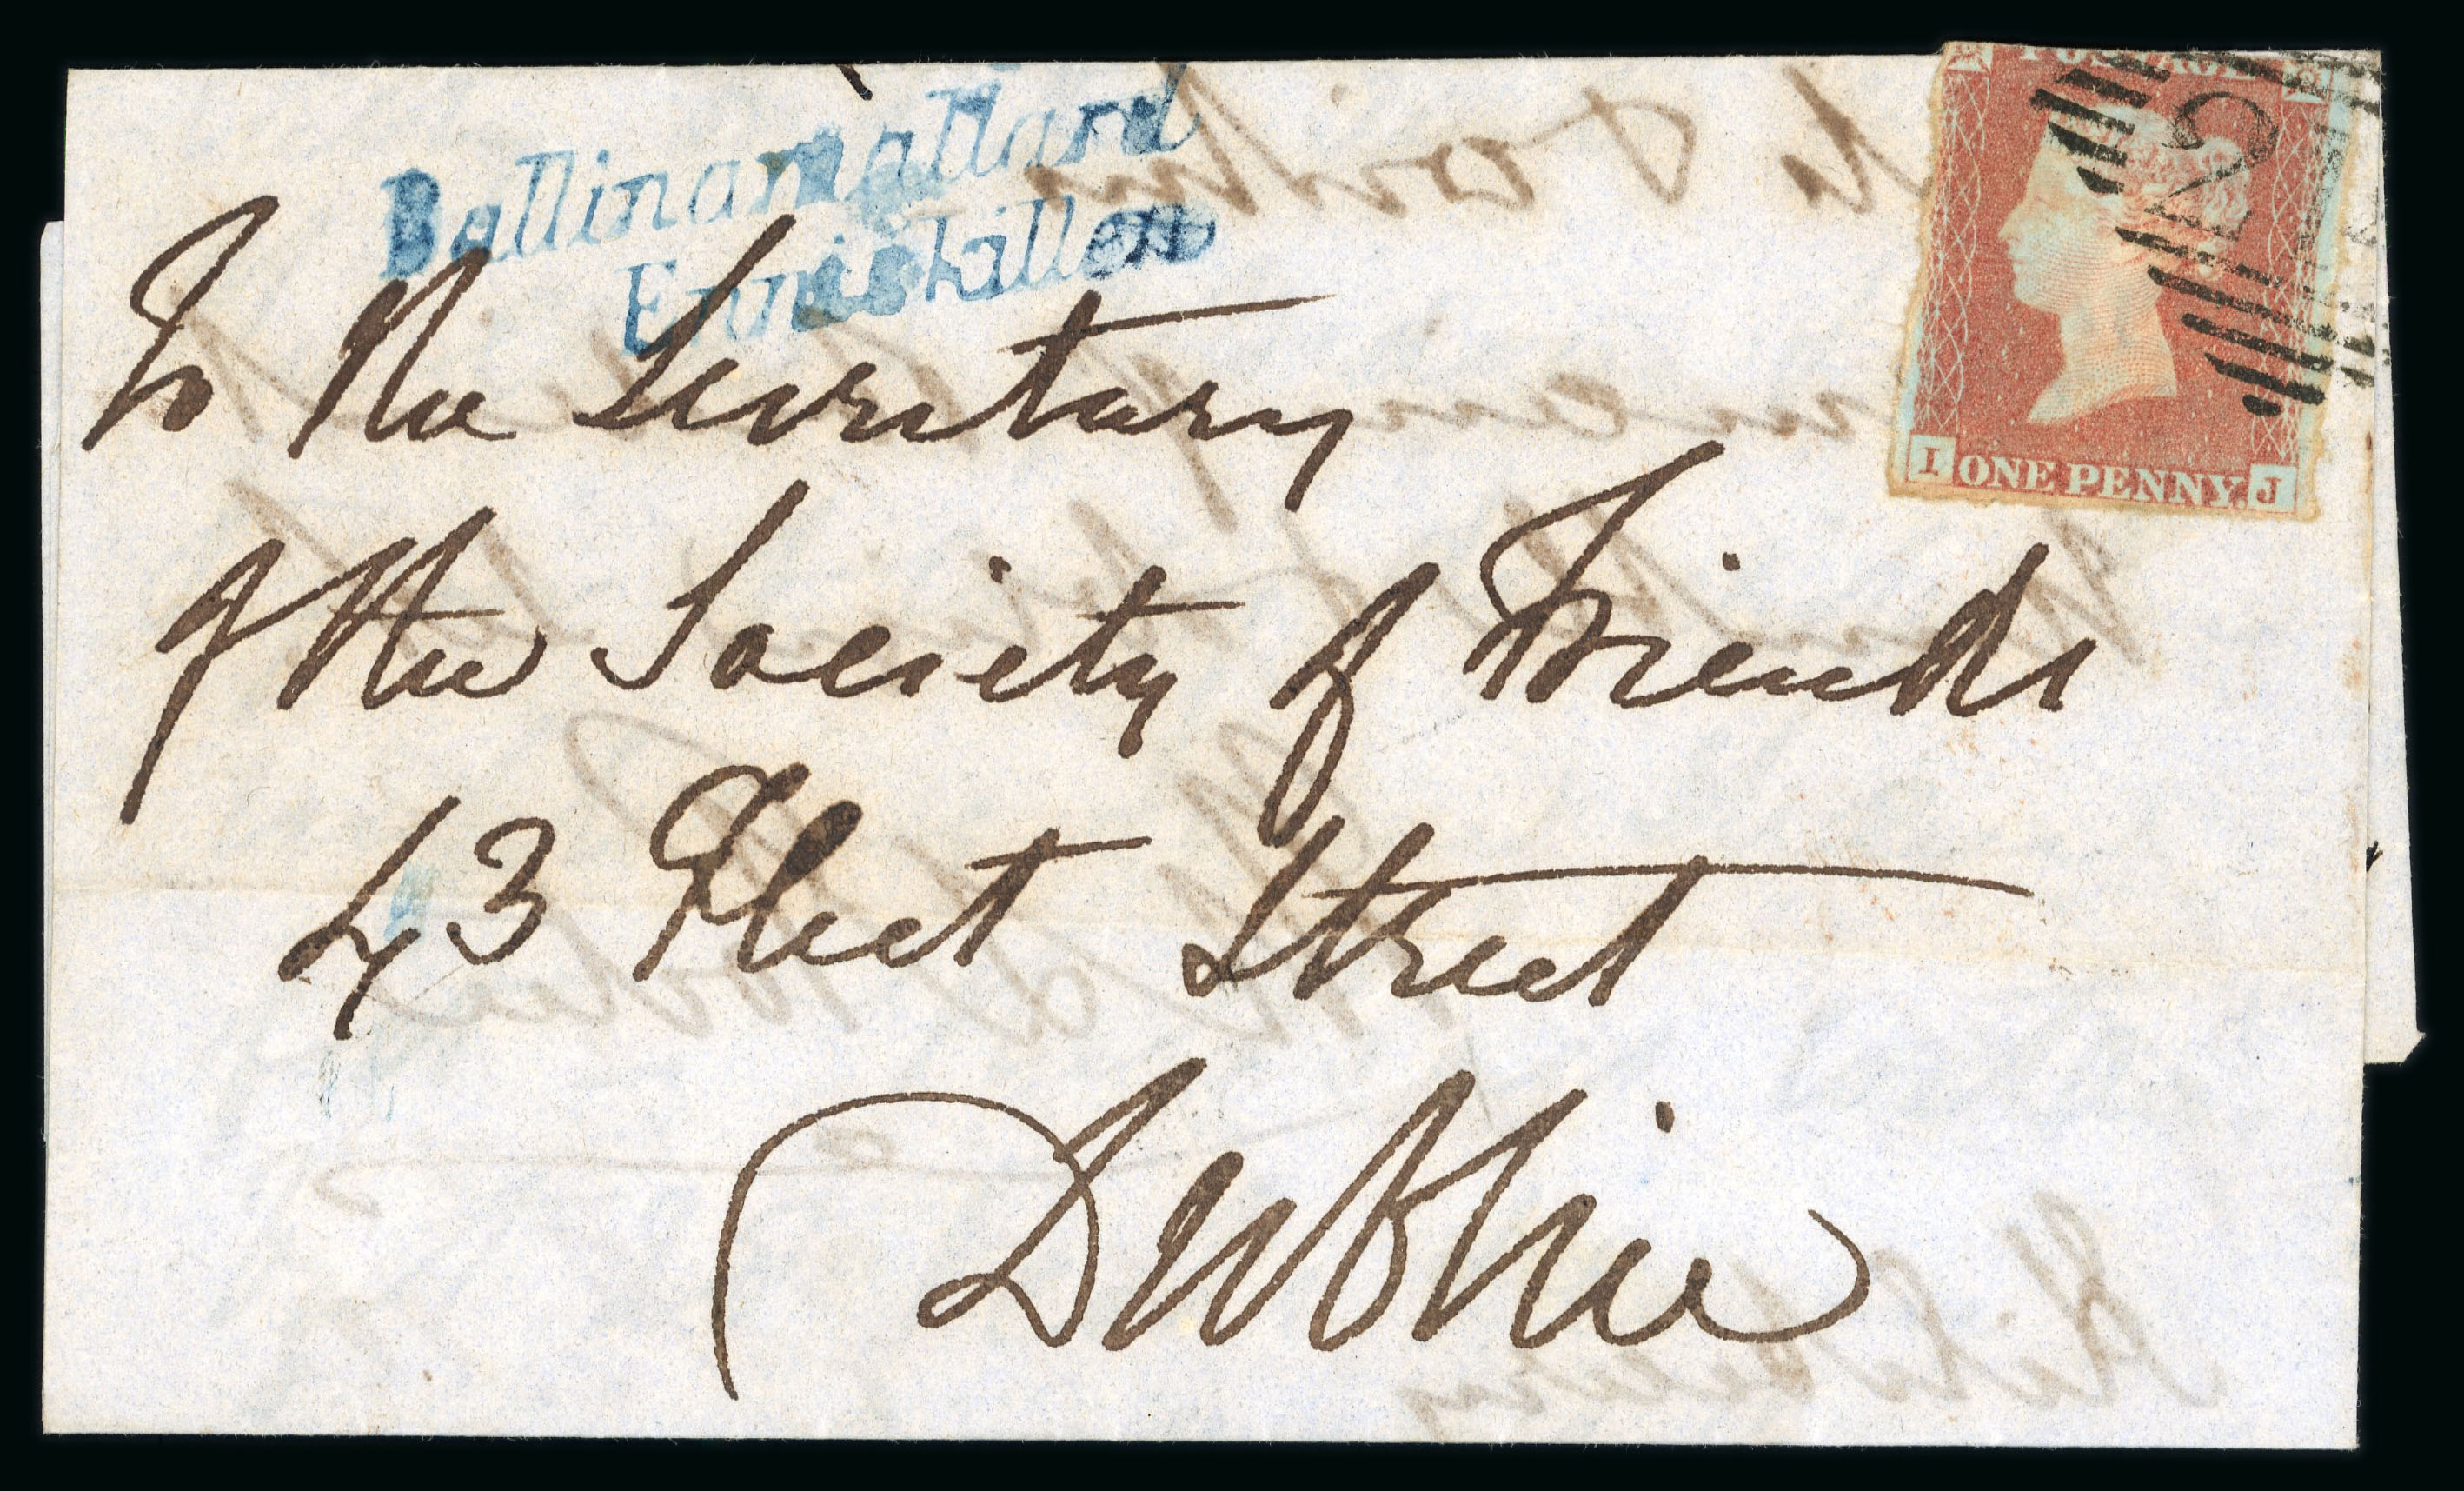 Ballinamallard
Enniskillen
POSTAGE
2
I ONE PENNY. J
To the Secretary
of the Society of Friends
43 Fleet Street
Dublin